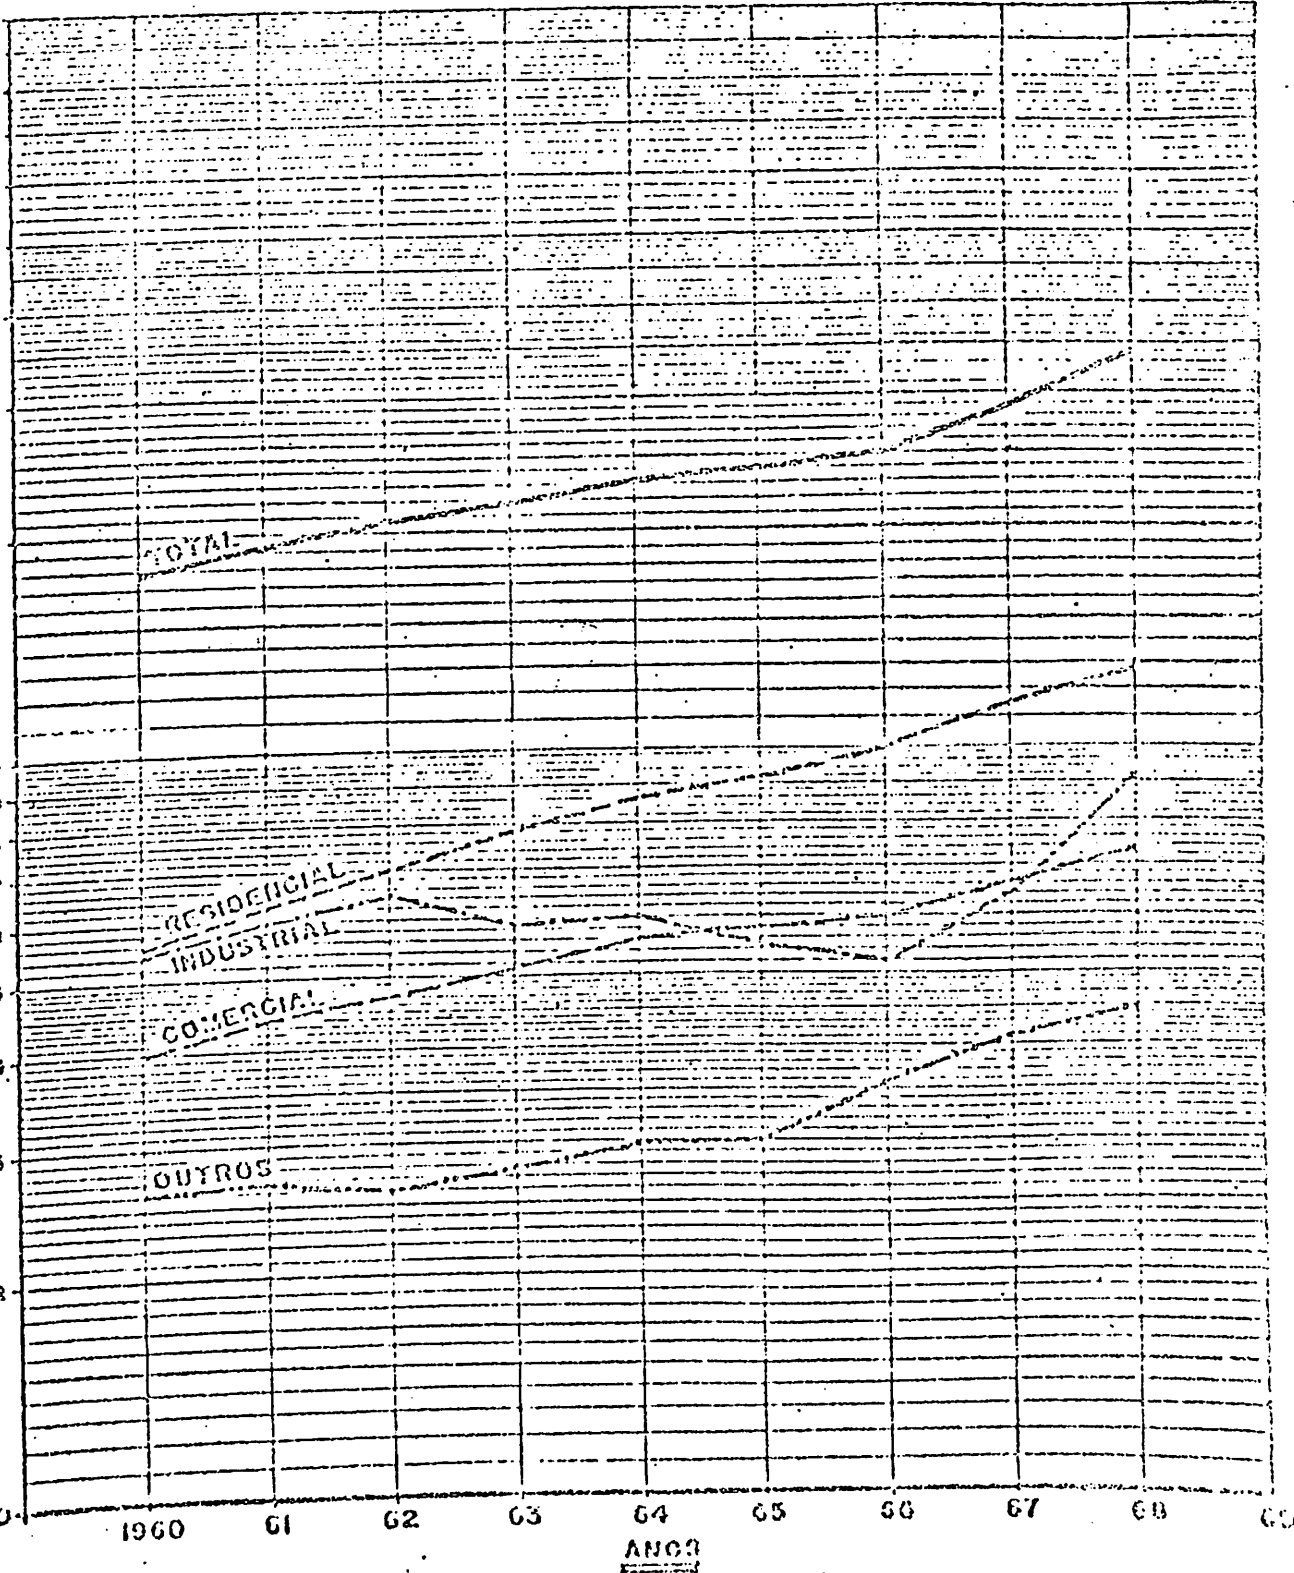 TOTAL
RESIDENCIAL
INDUSTRIAL
COMERCIAL
OUTROS
1960 61 62 63 64 65 66 67 68
ANOS